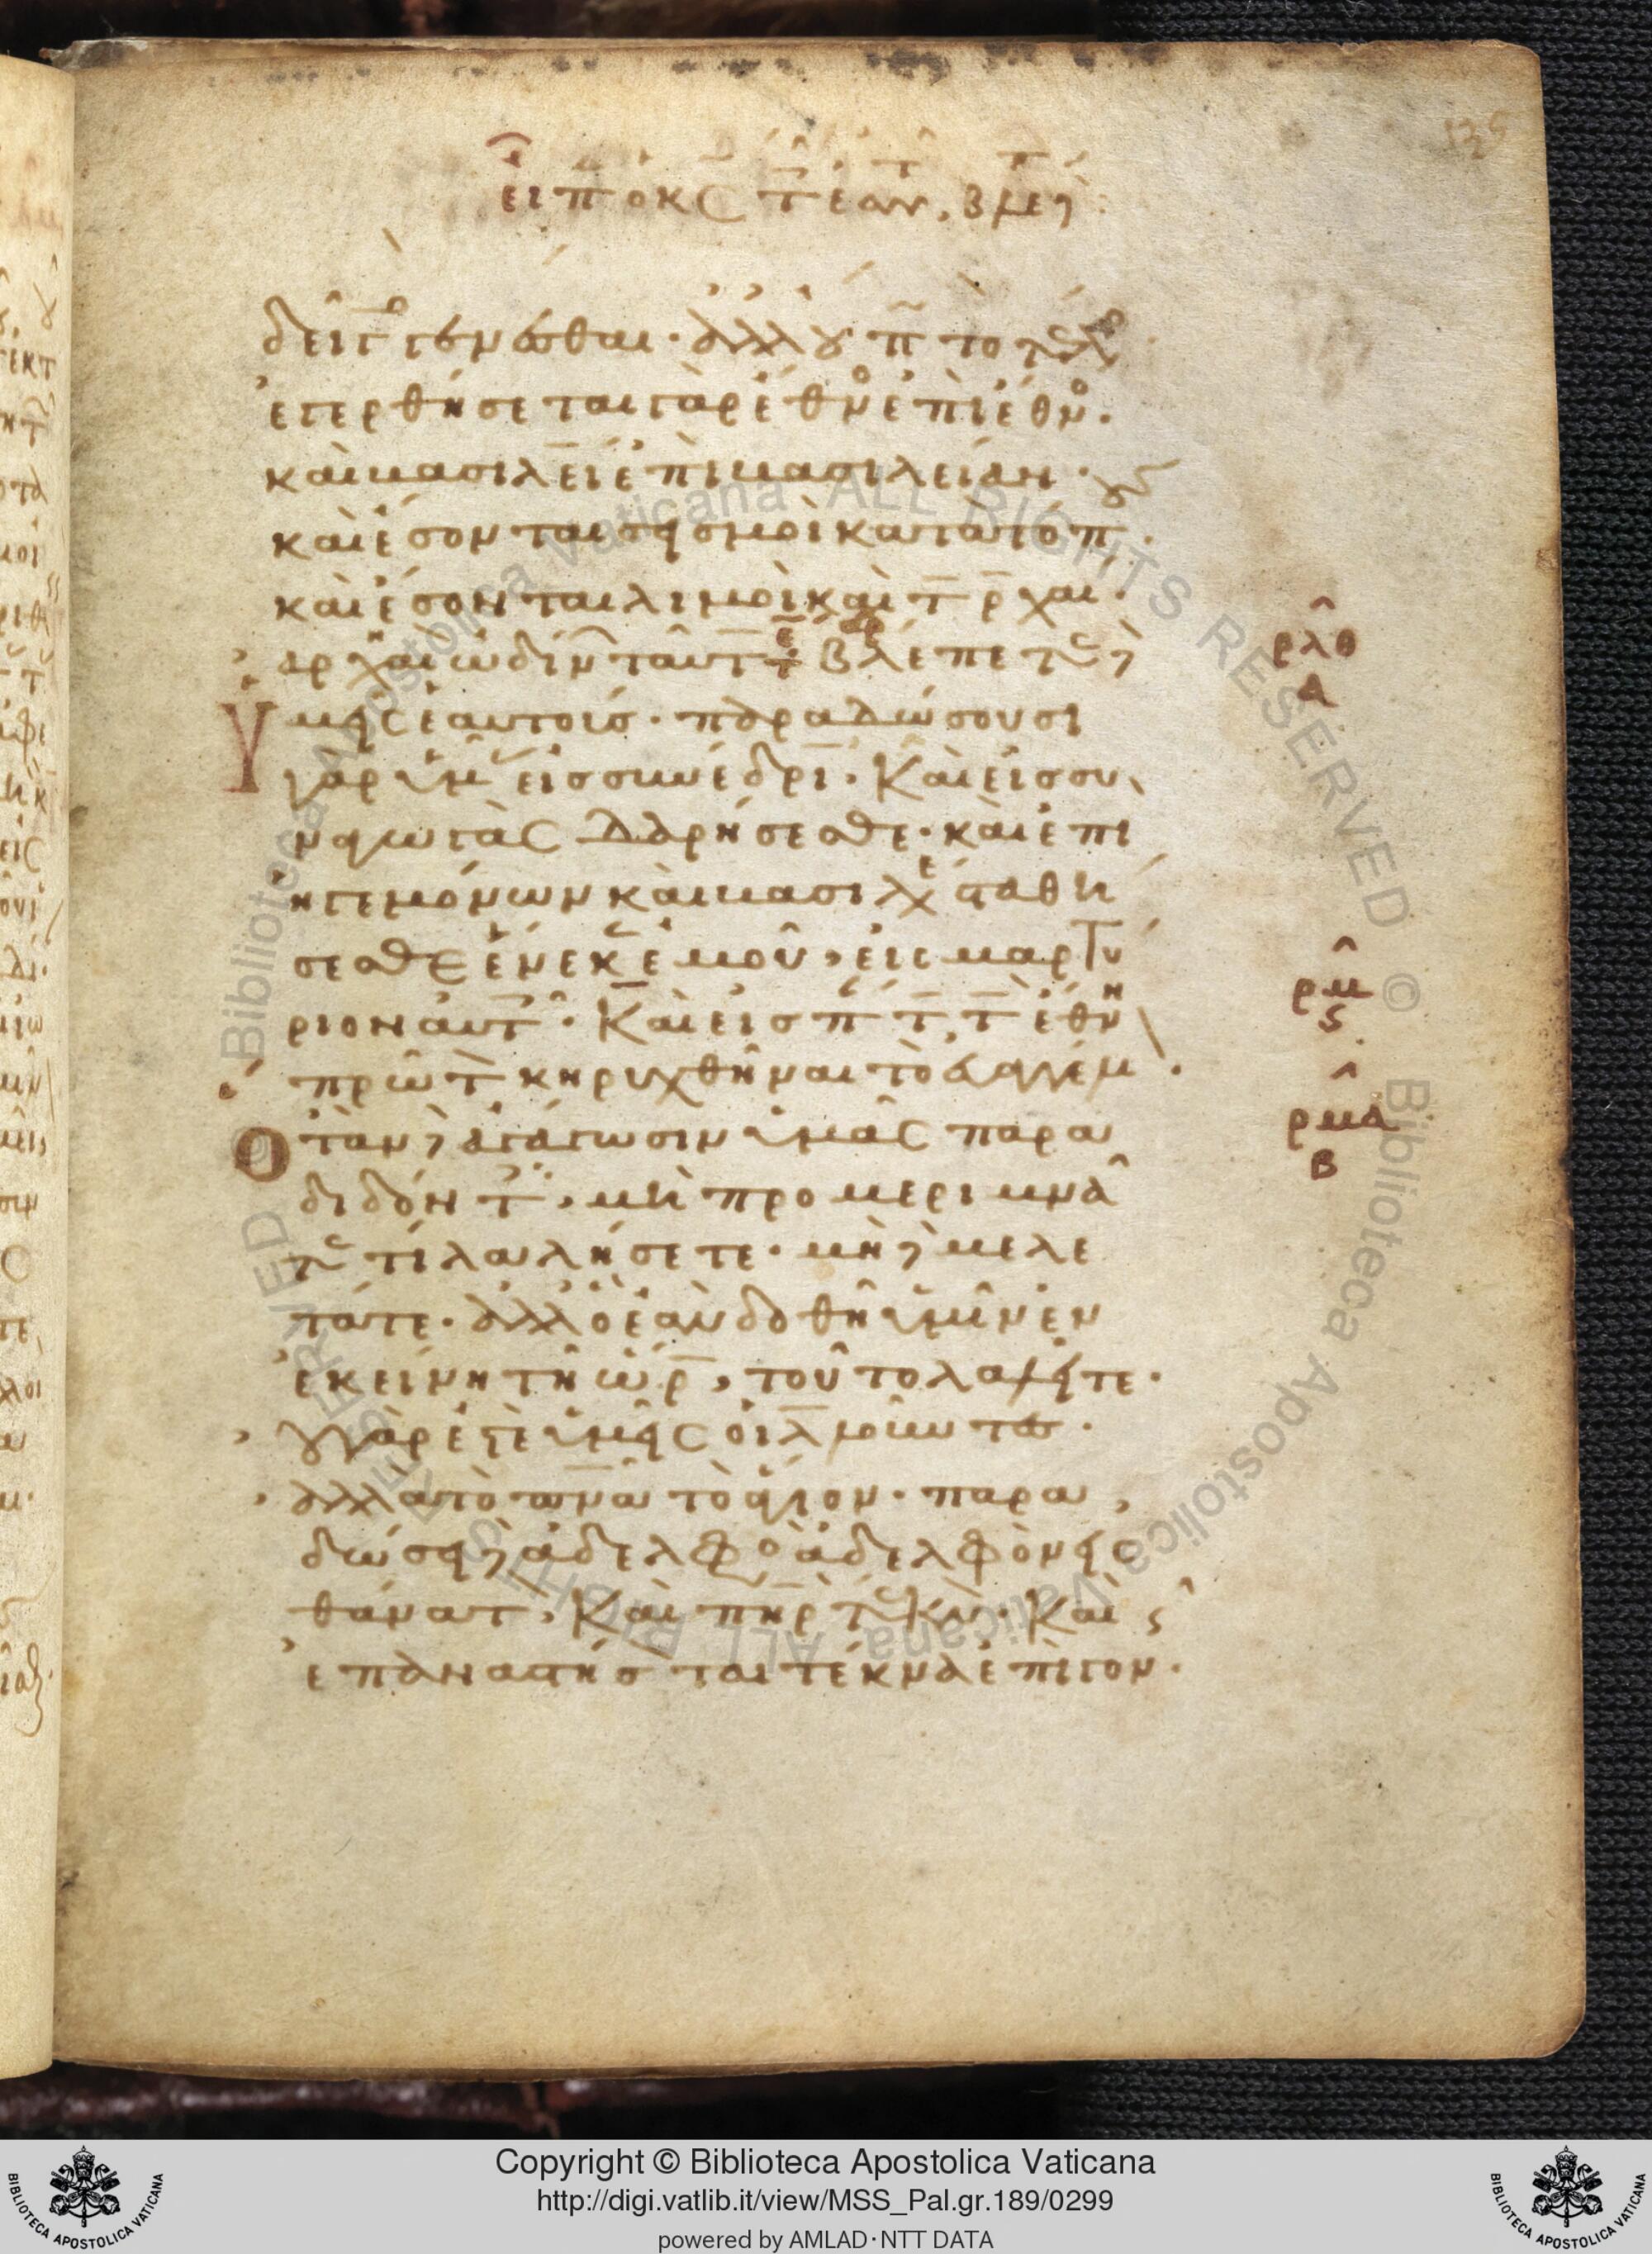 δεῖ γ γενέσθαι· ἀλλ οὔπ τὸ τέλο
ἐγερθήσεται γὰρ ἔθνο ἐπὶ ἔθνο·
καὶ βασιλεί ἐπὶ βασιλείαν·
καὶ ἔσονται σεισμοὶ κατὰ τόπ·
καὶ ἔσονται λιμοὶ καὶ τ ρ χαί·
ἀρχαὶ ὠδίν ταῦτ βλέπετε δὲ
Ὑμεῖς ἑαυτοίσ· παραδώσουσι
γὰρ ὑμ εἰσ συνέδρι· Καὶ εἰσ συ
ναγωγὰς δαρήσεσθε· καὶ ἐπὶ
ἡγεμόνων καὶ βασιλε σταθή
σεσθε ἕνεκε ἐμοῦ, εἰς μαρτύ
ριον αὐτ· Καὶ εἰσ π τ τ ἔθνη
πρῶτ κηρυχθῆναι τὸ εὐαγγέλι·
Ὅταν δὲ ἀγάγωσιν ὑμᾶς παρα
διδόντ, μὴ προμεριμνᾶ
τε τί λαλήσετε· μὴ δὲ μελε
τᾶτε· ἀλλ ὃ ἐὰν δοθῆ ὑμῖν ἐν
ἐκείνη τῆ ὥρ, τοῦτο λαλεῖτε·
οὐ γάρ ἐστε ὑμεῖς οἱ λαλοῦντες·
ἀλλὰ τὸ πνα τὸ ἅγιον· παρα
δώσει δὲ ἀδελφὸ ἀδελφὸν εἰς
θάνατ, Καὶ πηρ τέκν· Καὶ
ἐπαναστήσ ται τέκνα ἐπὶ γον·
ρλθ
α
ρμ
ς
ρμα
β
Copyright © Biblioteca Apostolica Vaticana
http://digi.vatlib.it/view/MSS_Pal.gr.189/0299
powered by AMLAD·NTT DATA